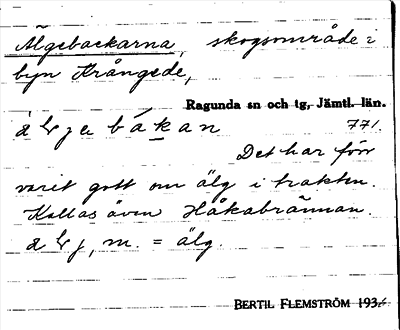 Älgebackarna, skogsområde i
byn Krångede,
Ragunda sn och tg, Jämtl. län.
771.
Det har förr
varit gott om älg i trakten.
Kallas även Håkabrännan.
m. = älg.
BERTIL FLEMSTRÖM 1936